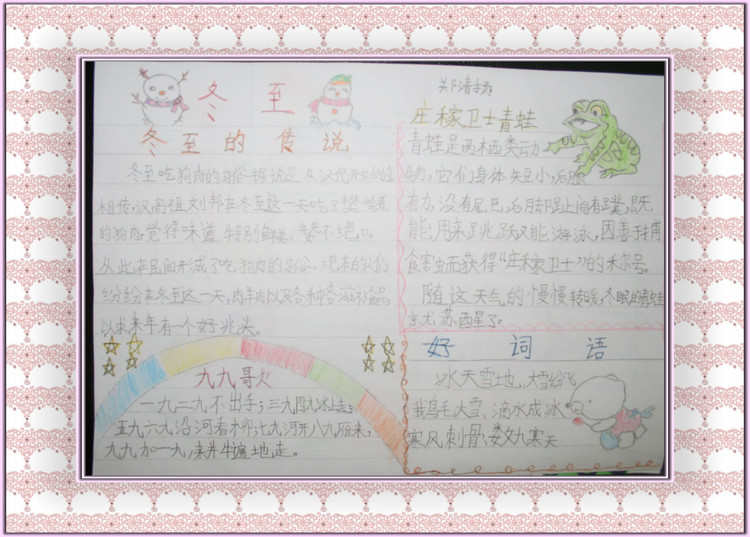 冬 至
冬至的传说
冬至吃狗肉的习俗据说是从汉代开始的
相传,汉高祖刘邦在冬至这一天吃了樊哙煮
的狗肉觉得味道特别鲜美,赞不绝口。
从此在民间形成了吃狗肉的习俗。现在的人们
纷纷在冬至这一天,吃羊肉以及各种各
以求来年有一个好兆头。
庄稼卫士青蛙
青蛙是两栖类动
物,它们身体短小,后腿
有力,没有尾巴,后脚趾上有蹼,既
能用来跳跃又能游泳,因善于捕
食害虫而获得“庄稼卫士”的称号。
随这天气的慢慢转暖,冬眠的青蛙
苏西星了。
九九哥欠
一九二九不出手;三九四九冰上走;
五九六九沿河看柳;七九河开八九雁来;
九九加一九,耕牛遍地走。
好词语
冰天雪地、大雪纷飞
鹅毛大雪、滴水成冰
寒风刺骨、数九寒天